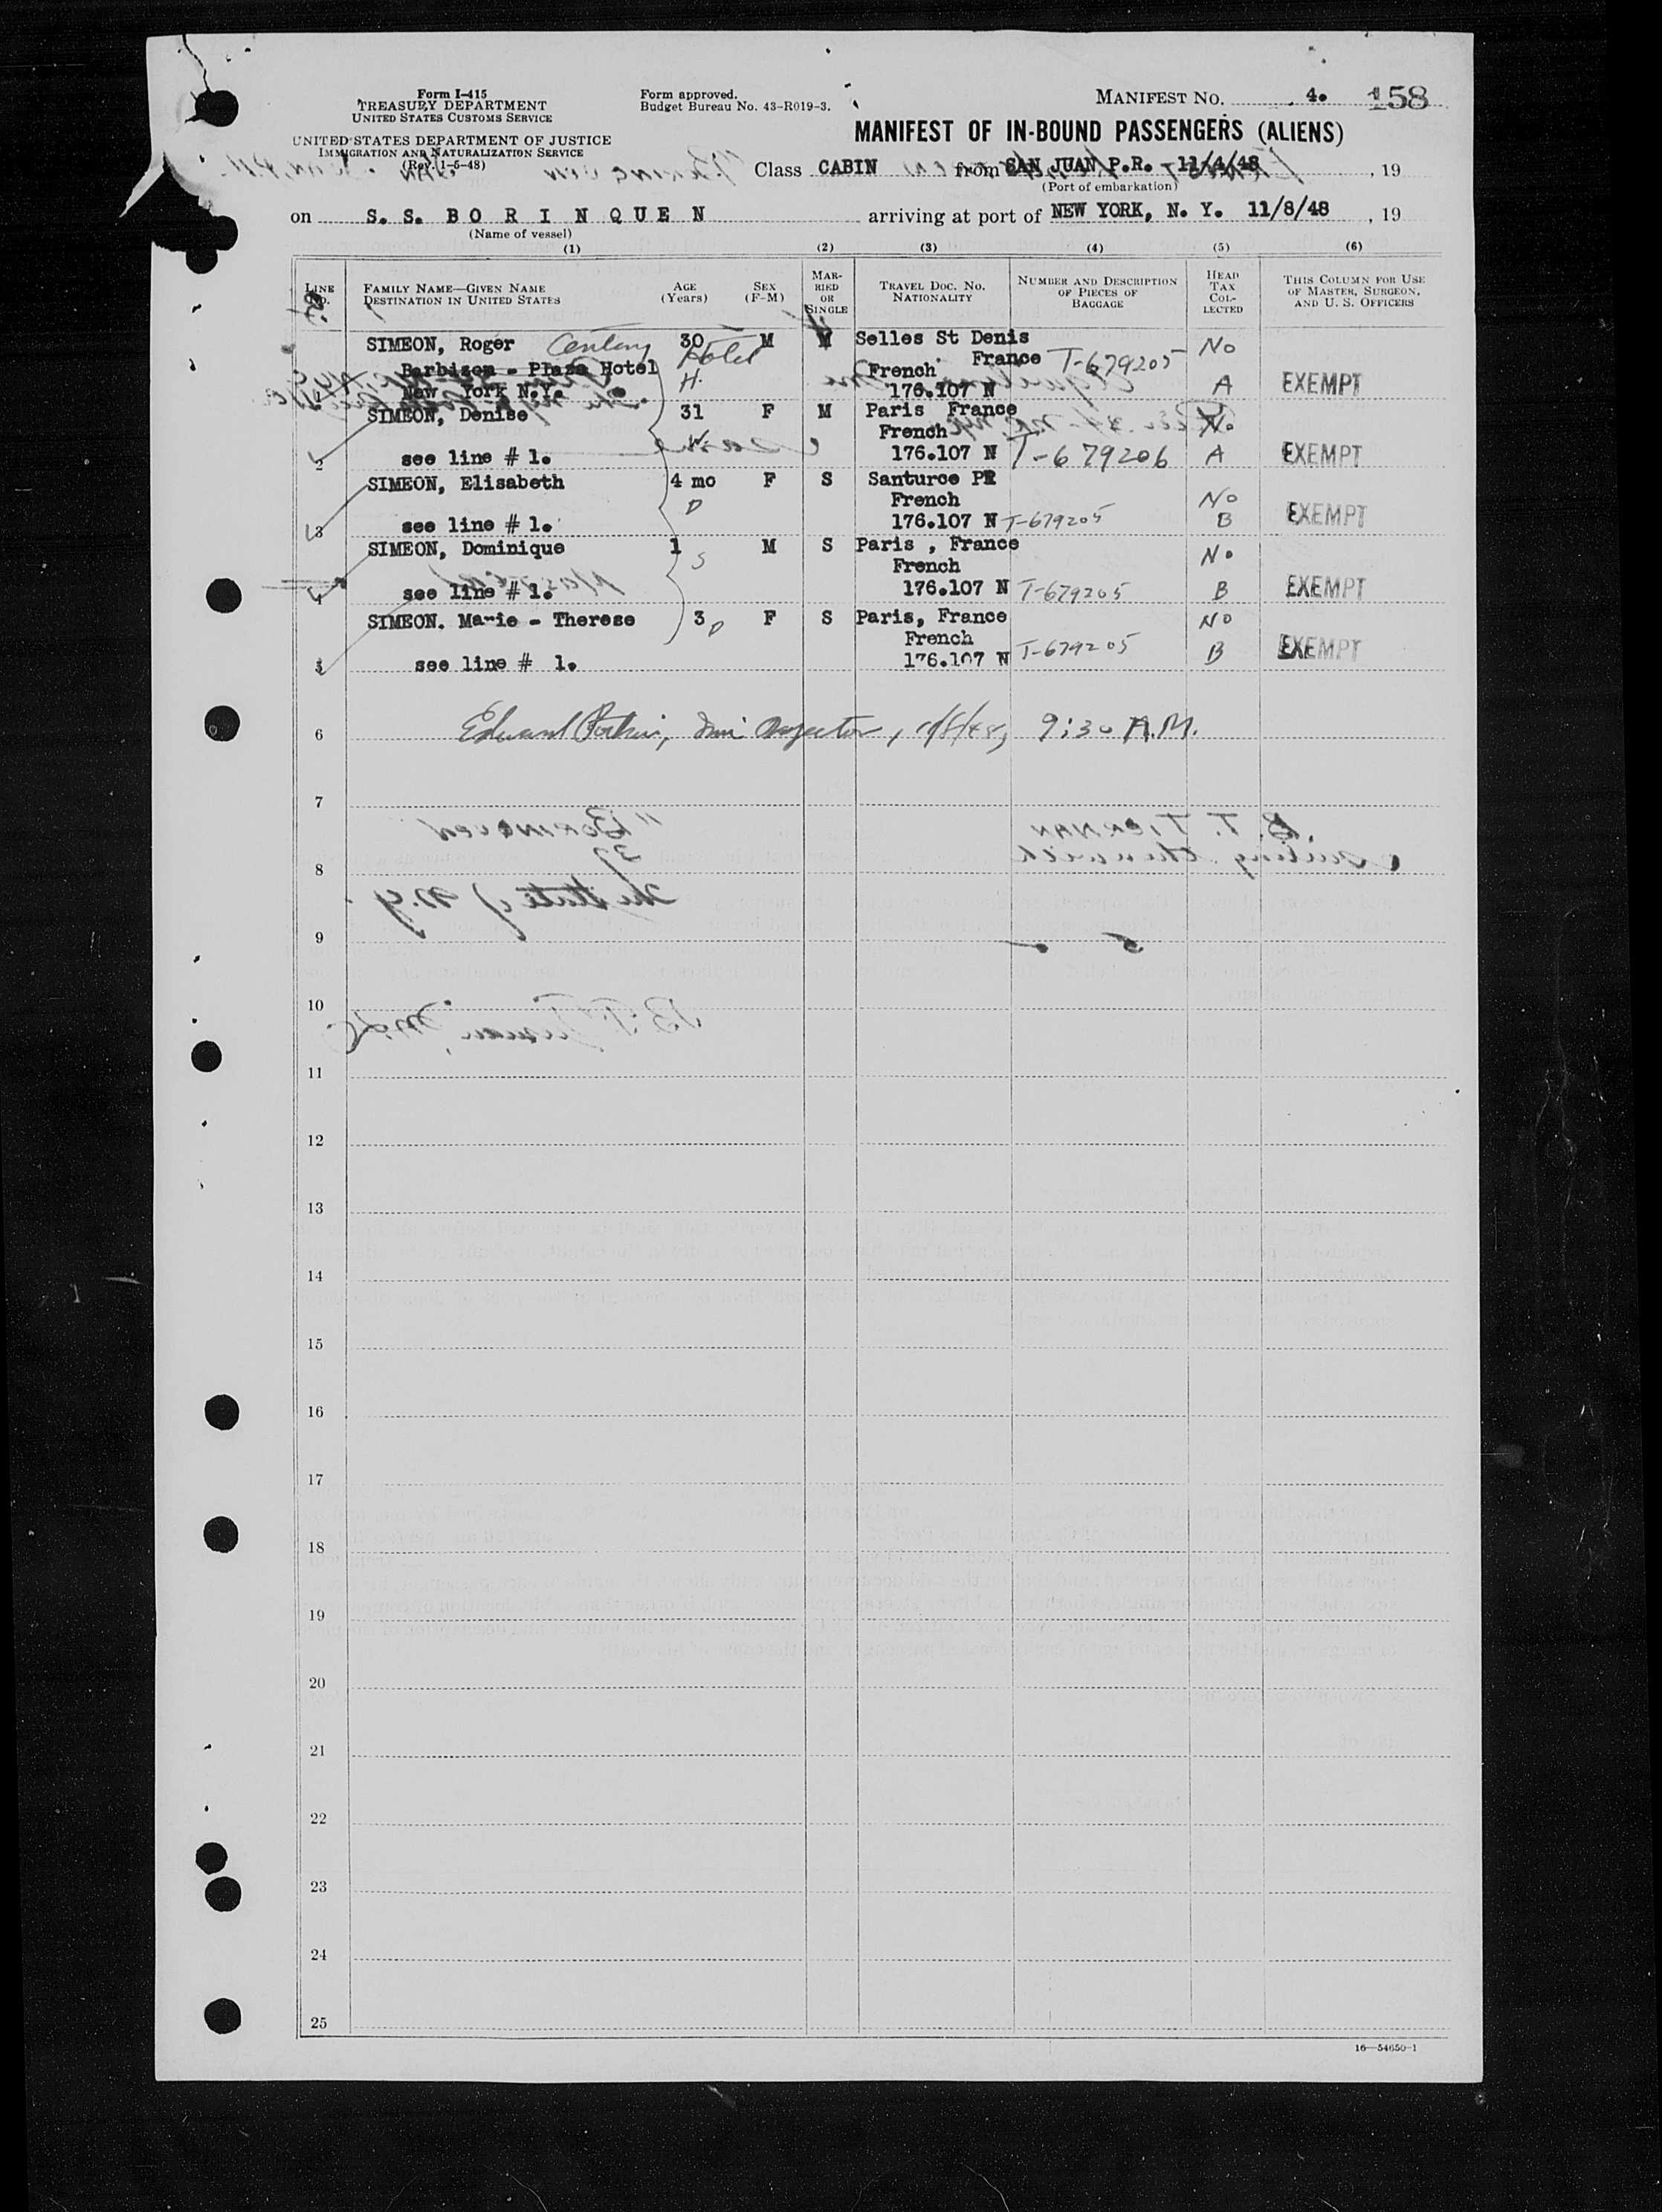 Form I-415
TREASURY DEPARTMENT
UNITED STATES CUSTOMS SERVICE
UNITED STATES DEPARTMENT OF JUSTICE
IMMIGRATION AND NATURALIZATION SERVICE
(Rev. 1-5-48)
Form approved.
Budget Bureau No. 43-R019-3.
MANIFEST NO. 4. 158
MANIFEST OF IN-BOUND PASSENGERS (ALIENS)
Class CABIN from SAN JUAN P.R. 11/4/48, 19
(Port of embarkation)
on S. S. B O R I N Q U E N arriving at port of NEW YORK, N. Y. 11/8/48, 19
(Name of vessel)
(1) (2) (3) (4) (5) (6)
LINE No. FAMILY NAME—GIVEN NAME DESTINATION IN UNITED STATES AGE (Years) SEX (F-M) MARRIED OR SINGLE TRAVEL DOC. NO. NATIONALITY NUMBER AND DESCRIPTION OF PIECES OF BAGGAGE HEAD TAX COLLECTED THIS COLUMN FOR USE OF MASTER, SURGEON, AND U. S. OFFICERS
SIMEON, Roger 30 M M Selles St Denis No
Barbizon - Plaza Hotel Hotel H. French France T-679205
1 New York N.Y. 176.107 N A EXEMPT
SIMEON, Denise 31 F M Paris France No
W. French
2 see line # 1. 176.107 N T-679206 A EXEMPT
SIMEON, Elisabeth 4 mo F S Santurce PR
D French No
3 see line # 1. 176.107 N T-679205 B EXEMPT
SIMEON, Dominique 1 S M S Paris , France No
French
4 see line # 1. 176.107 N T-679205 B EXEMPT
SIMEON. Marie - Therese 3 D F S Paris, France No
French
5 see line # 1. 176.107 N T-679205 B EXEMPT
6 Edward Inspector, 11/8/48, 9:30 A.M.
7
8
9
10
11
12
13
14
15
16
17
18
19
20
21
22
23
24
25
16—54650-1